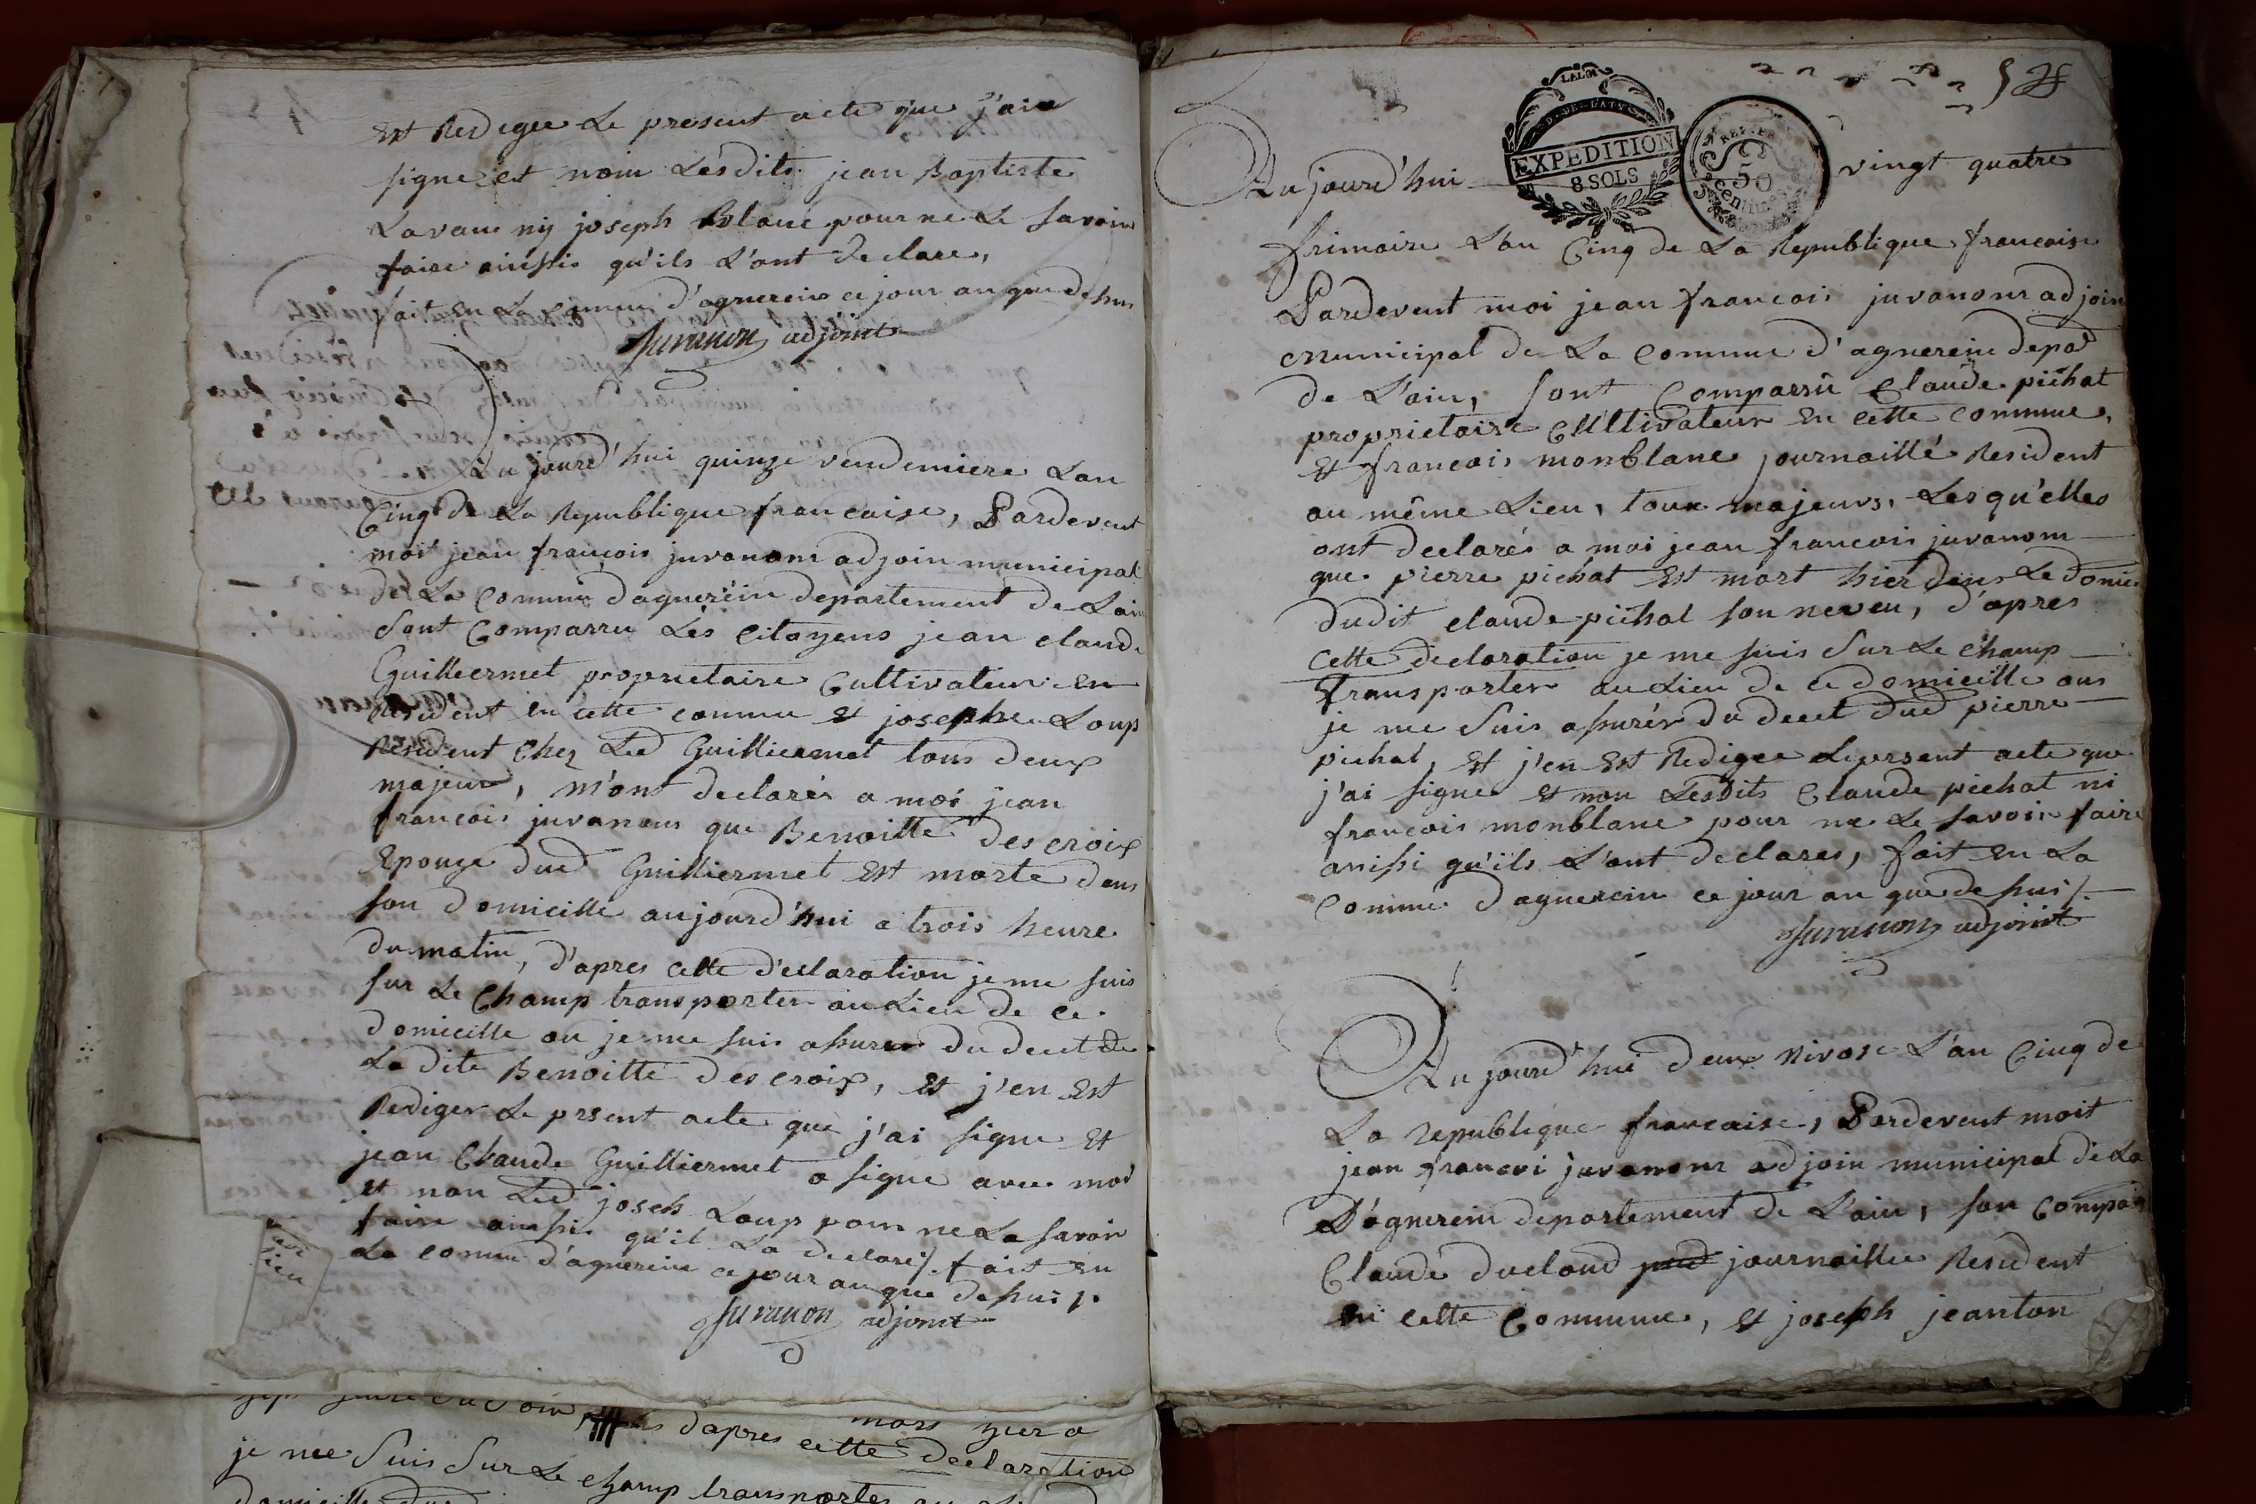 est Rediger le present acte que j'ait
signe et nom lesdits jean Baptiste
Lavau ny joseph Blanc pour ne le savoir
faire ainssi qu'ils l'ont declare,
fait en la comun d'agnerein ce jour an que dessus
Juvanon adjoint
Au jourd'hui quinze vendemiere L'an
Cinq de la Republique francaise, Pardevent
moi jean francois juvanons adjoin municipal
de la comune d'agnerein departement de Lain
Sont Comparru Les Citoyens jean claude
Guilliermet proprietaire Cultivateur en
resident en cette commue et josephe Loup
Resident Chez Led Guilliermet tous deux
majeurs, m'ont declarés a moi jean
francois juvanons que Benoitte descroix
Epouze dud Guilliermet Est morte dans
son domicille aujourd'hui a trois heure
du matin, d'apres cette declaration je me suis
sur le Champ transporter au Lieu de ce
domicille ou je me suis assurer du decet de
La dite Benoitte descroix, et j'en Est
Rediger le prsent acte que j'ai signe Et
jean Claude Guilliermet a signe avec moi
et non Led joseh Loup pour ne la savoir
faire ainssi qu'il la declaré/. fait en
La comue d'agnerein ce jour an que dessus /.
Juvanon adjoint
mors yer a
d'apres cette declaration
je me Suis Sur le champ transporter
52
LA LOI
EXPEDITION
8 SOLS
50
centimes
Au jourd'hui vingt quatre
frimaire L'an Cinq de La Republique francaise
Pardevent moi jean francois juvanons adjoin
municipal de La Commue d'agnerein depat
de L'ain, sont Comparru Claude pichat
proprietaire CUltivateur en cette commue,
et francois monblanc journaillé Resident
au même Lieu, toux majeurs, Lesqu'elles
ont declarés a moi jean francois juvanom
que pierre pichat Est mort hier dens Le domic
dudit claude pichat son neveu, d'apres
Cette declaration je me suis Sur Le champ
transporter au Lieu de ce domicille ous
je me Suis assurér du decet dud pierre
pichat, et j'en Est Rediger Le prsent acte que
j'ai signe et non Lesdits Claude pichat ni
francois monblanc pour ne le savoir faire
ainssi qu'ils L'ont declares, fait en La
Comue d'agnerein ce jour an que dessus /.
Juvanon adjoint
Au jourd'hui deux Nivose L'an Cinq de
La republique francaise, Pardevent moit
jean francoi juvanons adjoin municipal de La
D'agnerein departement de L'ain, son Compar
Claude ducloud journaillie Resident
en cette Commue, et joseph jeanton